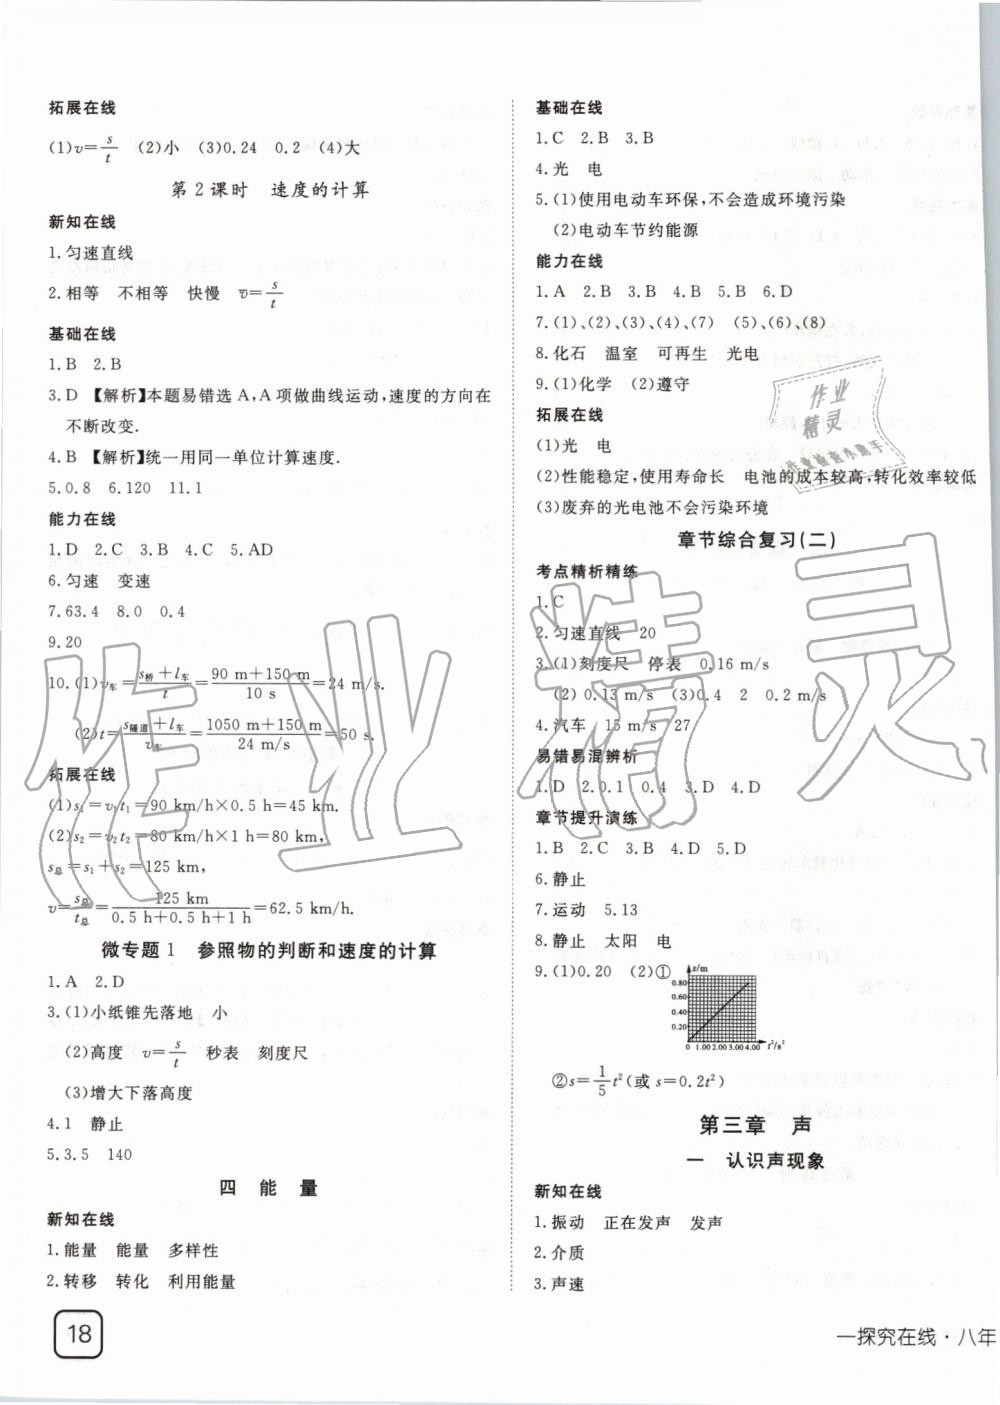 拓展在线
(1)v=s/t (2)小 (3)0.24 0.2 (4)大
第2课时 速度的计算
新知在线
1.匀速直线
2.相等 不相等 快慢 v=s/t
基础在线
1.B 2.B
3.D 【解析】本题易错选A,A项做曲线运动,速度的方向在
不断改变.
4.B 【解析】统一用同一单位计算速度.
5.0.8 6.120 11.1
能力在线
1.D 2.C 3.B 4.C 5.AD
6.匀速 变速
7.63.4 8.0 0.4
9.20
10.(1)v车=(s桥+l车)/t=(90 m+150 m)/(10 s)=24 m/s.
(2)t=(s隧道+l车)/v车=(1050 m+150 m)/(24 m/s)=50 s.
拓展在线
(1)s₁=v₁t₁=90 km/h×0.5 h=45 km.
(2)s₂=v₂t₂=80 km/h×1 h=80 km,
s总=s₁+s₂=125 km,
v=s总/t总=125 km/(0.5 h+0.5 h+1 h)=62.5 km/h.
微专题1 参照物的判断和速度的计算
1.A 2.D
3.(1)小纸锥先落地 小
(2)高度 v=s/t 秒表 刻度尺
(3)增大下落高度
4.1 静止
5.3.5 140
四 能 量
新知在线
1.能量 能量 多样性
2.转移 转化 利用能量
18
基础在线
1.C 2.B 3.B
4.光 电
5.(1)使用电动车环保,不会造成环境污染
(2)电动车节约能源
能力在线
1.A 2.B 3.B 4.B 5.B 6.D
7.(1)、(2)、(3)、(4)、(7) (5)、(6)、(8)
8.化石 温室 可再生 光电
9.(1)化学 (2)遵守
拓展在线
(1)光 电
(2)性能稳定,使用寿命长 电池的成本较高,转化效率较低
(3)废弃的光电池不会污染环境
章节综合复习(二)
考点精析精练
1.C
2.匀速直线 20
3.(1)刻度尺 停表 0.16 m/s
(2)0.13 m/s (3)0.4 2 0.2 m/s
4.汽车 15 m/s 27
易错易混辨析
1.D 2.0.1 0.4 3.D 4.D
章节提升演练
1.B 2.C 3.B 4.D 5.D
6.静止
7.运动 5.13
8.静止 太阳 电
9.(1)0.20 (2)①
s/m
0.80
0.60
0.40
0.20
0 1.00 2.00 3.00 4.00 t²/s²
②s=1/5t²(或s=0.2t²)
第三章 声
一 认识声现象
新知在线
1.振动 正在发声 发声
2.介质
3.声速
一探究在线·八年
作业
精灵
作业检查小助手
作业精灵